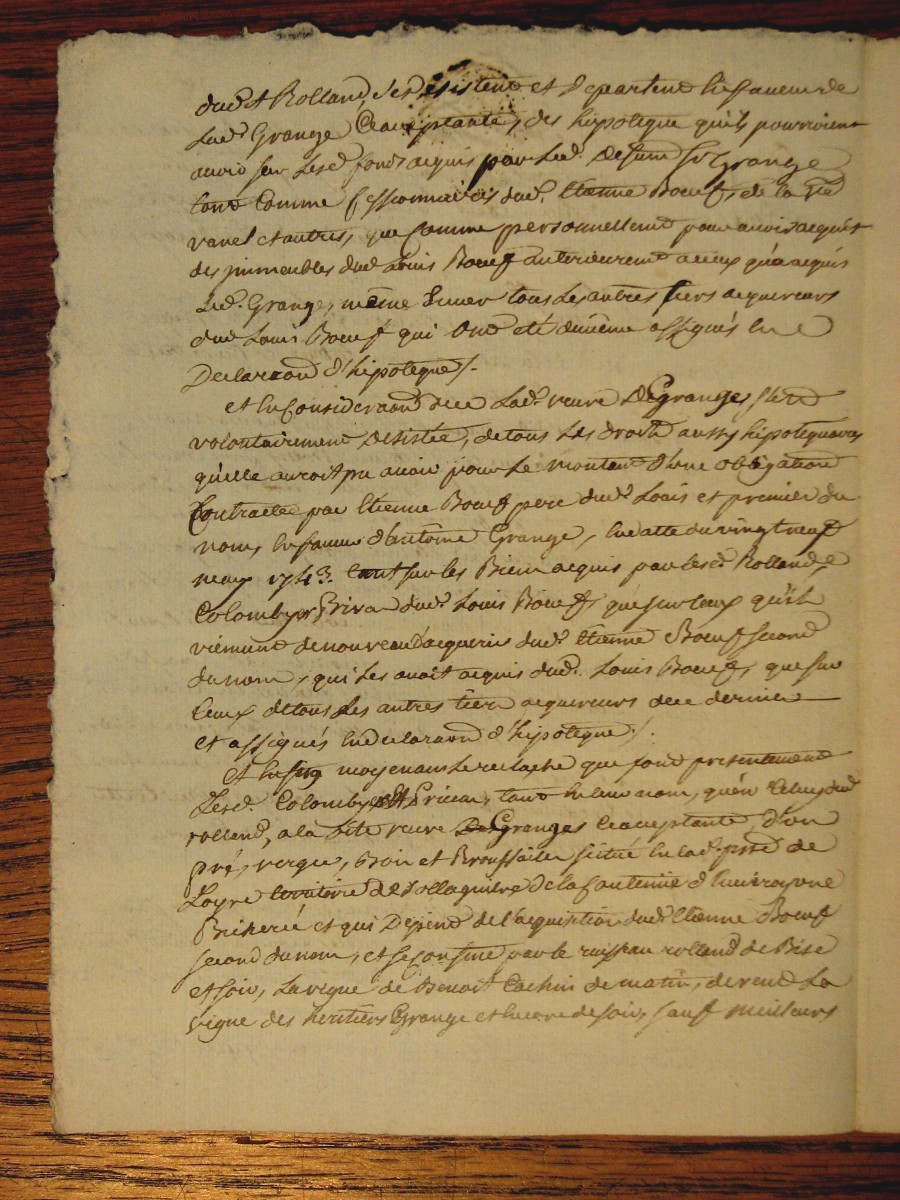 dud.t Rolland, se désistent et departent en faveur de
lad.e Grange Ceacceptante, des hipoteque qu'ils pourroient
avoir sur lesd. fonds acquis par led. defunt S.r Grange
tant Comme Cessionnaires dud. Etienne Boeuf, de la
ravel et autres, que Comme personnellement pour avoir acquis
des immeubles dud. Louis Boeuf anterieurement a ceux qu'a acquis
led. Grange, même Enver tous les autres tiers acquereurs
dud. Louis Boeuf qui ont été de même assignés en
Declaraõn d'hipoteque /.
et en Consideraõn de ce lad.e veuve DeGranges s'est
volontairement desistée, de tous les droits aussy hipotequaires
qu'elle auroit pu avoir pour le montant d'une obligation
Contractée par Etienne Boeuf pere dud. Louis et premier du
nom, en faveur d'antoine Grange, en datte du vingt neuf
mars 1743. tant sur les Biens acquis par lesd. Rolland,
Colomby et dud. Louis Boeuf, que sur Ceux qu'ils
viennent de nouveau d'acquerir dud. Etienne Boeuf second
du nom, qui les avoit acquis dud. Louis Boeuf, que sur
Ceux de tous les autres tiers acquereurs de ce dernier
et assignés en declaraõn d'hipoteque /.
Et moyenant le relaché que font presentement
lesd. Colomby et tant en leur nom, qu'en Celuy dud.
rolland, a la dite veuve DeGranges Ceacceptante d'un
pré, verger, Bois et Broussailes scitué en lad. de
Loyre territoire de de la fontenie
et qui Depend de l'acquisition dud. Etienne Boeuf
second du nom, et se Confine par le ruisseau rolland de Bise
et soir, la vigne de Benoit Cachin de matin, de vent la
vigne des heritiers Grange et encore de soir, sauf meilleurs